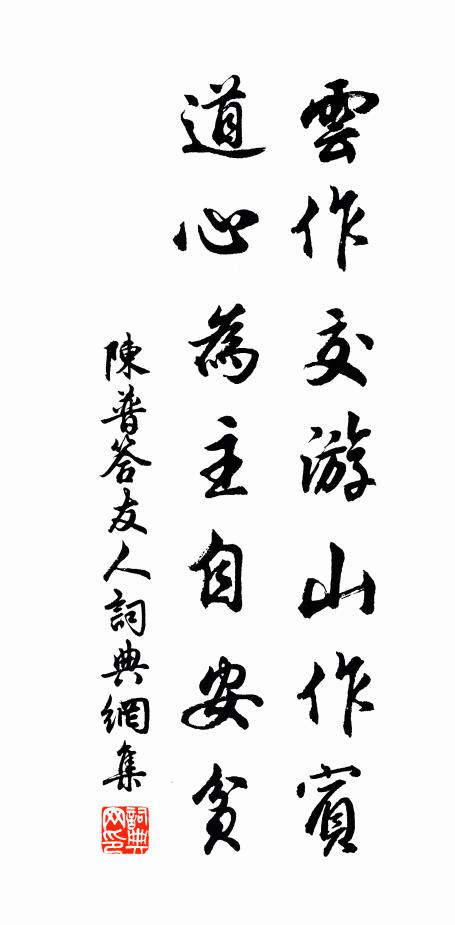 雲作交游山作賓
道心為主自安貧
陳普答友人詞典網集
詞典網印